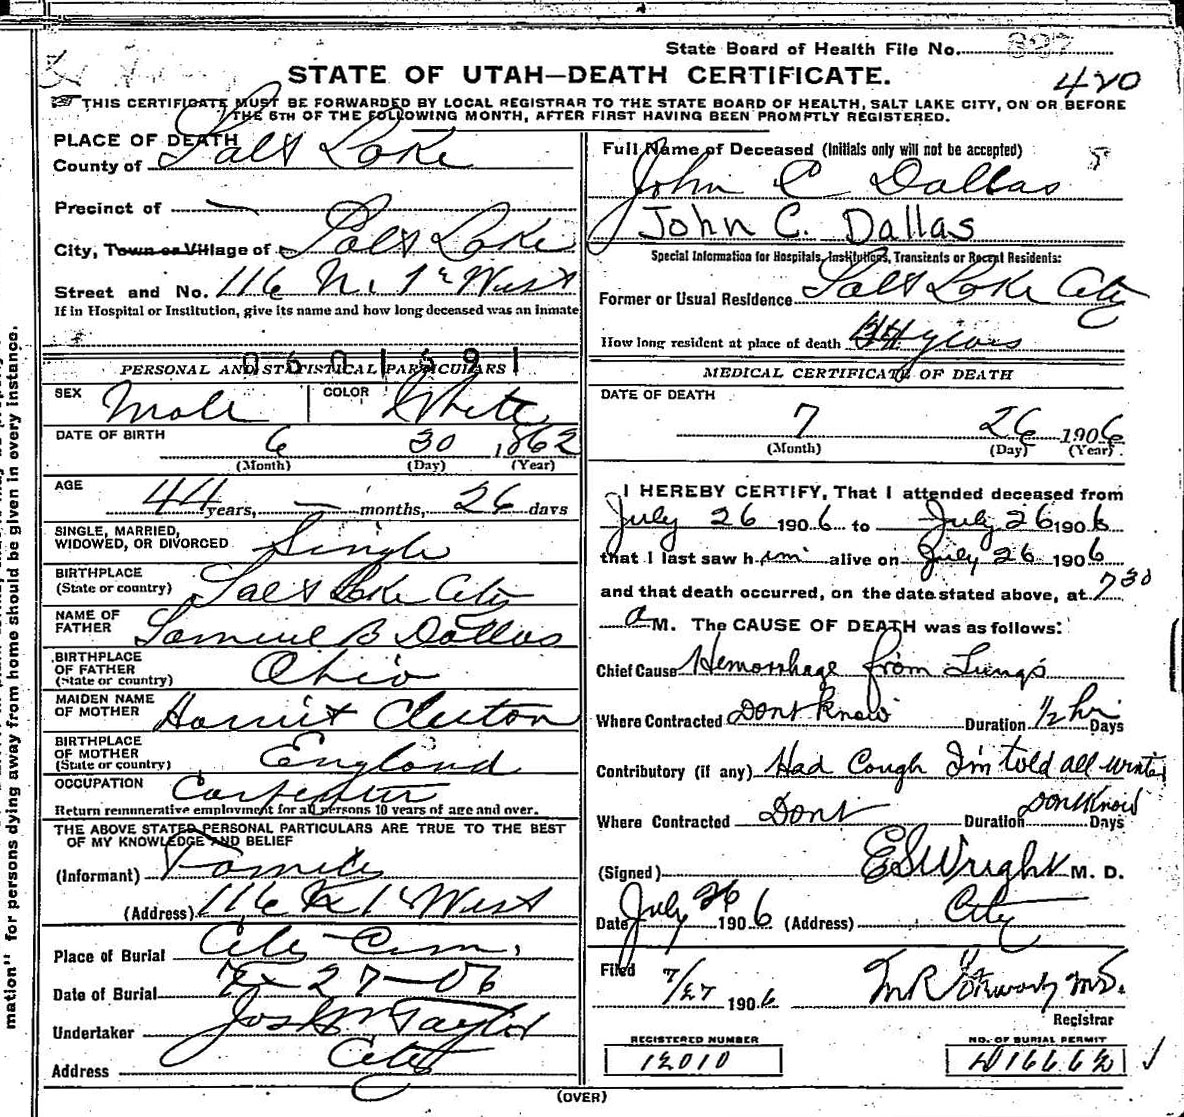 State Board of Health File No. 327
STATE OF UTAH—DEATH CERTIFICATE.
420
THIS CERTIFICATE MUST BE FORWARDED BY LOCAL REGISTRAR TO THE STATE BOARD OF HEALTH, SALT LAKE CITY, ON OR BEFORE
THE 5TH OF THE FOLLOWING MONTH, AFTER FIRST HAVING BEEN PROMPTLY REGISTERED.
PLACE OF DEATH
County of Salt Lake
Precinct of —
City, Town or Village of Salt Lake
Street and No. 116 N. 1st West
If in Hospital or Institution, give its name and how long deceased was an inmate
0601691
PERSONAL AND STATISTICAL PARTICULARS
SEX Male COLOR White
DATE OF BIRTH 6 30 1862
(Month) (Day) (Year)
AGE 44 years, — months, 26 days
SINGLE, MARRIED,
WIDOWED, OR DIVORCED Single
BIRTHPLACE
(State or country) Salt Lake City
NAME OF
FATHER Samuel B Dallas
BIRTHPLACE
OF FATHER
(State or country) Ohio
MAIDEN NAME
OF MOTHER Harriet
BIRTHPLACE
OF MOTHER
(State or country) England
OCCUPATION Carpenter
Return remunerative employment for all persons 10 years of age and over.
THE ABOVE STATED PERSONAL PARTICULARS ARE TRUE TO THE BEST
OF MY KNOWLEDGE AND BELIEF
(Informant) Family
(Address) 116 N 1st West
Place of Burial City Cem,
Date of Burial 7-27-06
Undertaker Jos Wm Taylor
Address City
Full Name of Deceased (Initials only will not be accepted)
John C Dallas
John C. Dallas
Special Information for Hospitals, Institutions, Transients or Recent Residents:
Former or Usual Residence Salt Lake City
How long resident at place of death 44 years
MEDICAL CERTIFICATE OF DEATH
DATE OF DEATH
7 26 1906
(Month) (Day) (Year)
I HEREBY CERTIFY, That I attended deceased from
July 26 1906 to July 26 1906
that I last saw him alive on July 26 1906
and that death occurred, on the date stated above, at 7 30
a M. The CAUSE OF DEATH was as follows:
Chief Cause Hemorrhage from Lungs
Where Contracted Dont know Duration 1/2 hr Days
Contributory (if any) Had Cough I'm told all winter
Where Contracted Dont Duration Dont Know Days
(Signed) E S Wright M. D.
Date July 26 1906 (Address) City
Filed 7/27 1906
Registrar
REGISTERED NUMBER
12010
NO. OF BURIAL PERMIT
(OVER)
mation" for persons dying away from home should be given in every instance.